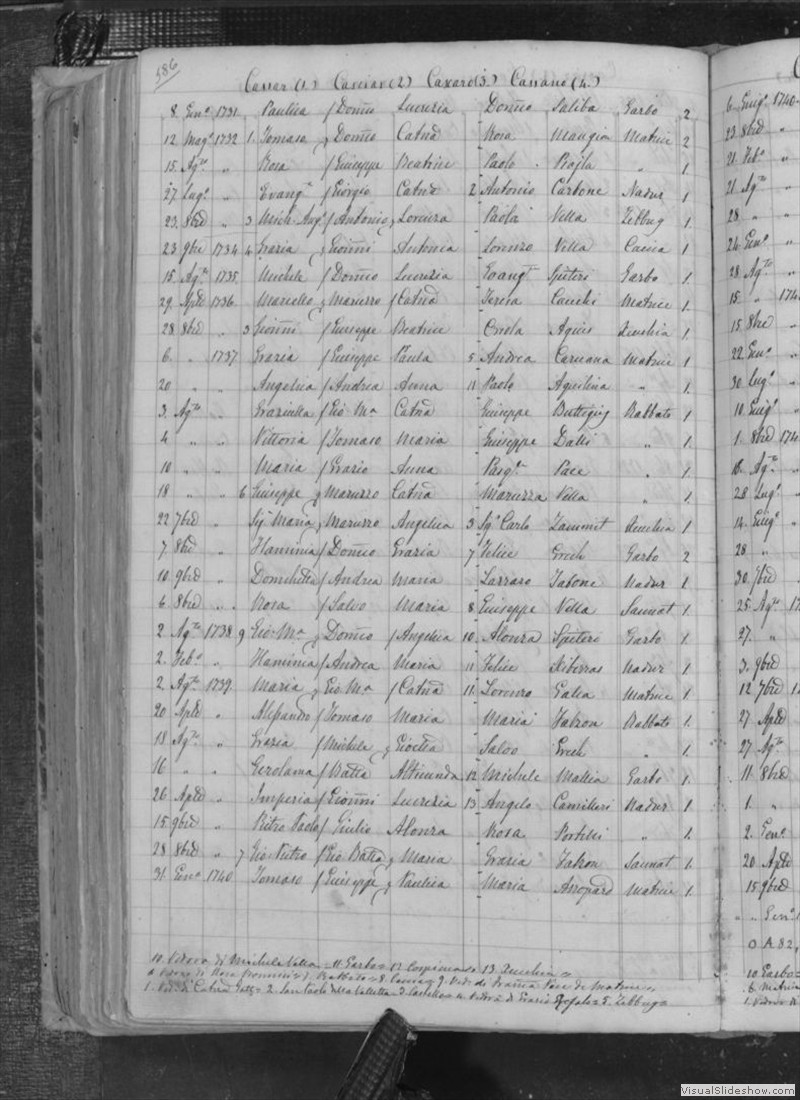 586
Cassar (1.) Casciar (2) Caxaro (3.) Cassano (4.)
8. Genº 1731. Paulica / Domco Lucrezia Domco Saliba Garbo 2
12 Magº 1732 1. Tomaso / Domco Catna Rosa Mangion Matrice 2
15. Agto „ Rosa / Giuseppe Beatrice Paolo Bajla „ 1.
27. Lugº „ Evangta / Giorgio Catna 2 Antonio Carbone Nadur 1
23. 8bre „ 3 Mich: Angº / Antonio Lorenza Paola Villa Zebbug 1.
23 9bre 1734 4 Grazia / Gioñni Antonia Lorenzo Villa Caccia 1
15. Agto 1735. Michele / Domco Lucrezia Evangta Spiteri Garbo 1.
29. Aple 1736. Mariello / Maruzzo / Catna Teresa Cauchi Matrice 1.
28. 8bre „ 3 Gioñni / Giuseppe Beatrice Orsola Agius Xeuchia 1
6. „ 1737 Grazia / Giuseppe Paula 5 Andrea Caruana Matrice 1
20 „ „ Angelica / Andrea Anna 11 Paolo Aquilina „ 1.
3. Agto „ Graziulla / Gio Ma Catna Giuseppe Buttigieg Rabbato 1
4 „ „ Vittoria / Tomaso Maria Giuseppe Dalli „ 1.
10 „ „ Maria / Grazio Anna Pasqle Pace „ 1.
18 „ „ 6 Giuseppe / Maruzzo Catna Maruzza Villa „ 1
22 7bre „ Sigra Maria / Maruzzo Angelica 3 Sigr Carlo Zammit Xeuchia 1
7. 8bre „ Flaminia / Domco Grazia 7 Felice Grech Garbo 2
10. 9bre „ Domchella / Andrea Maria Lazzaro Tabone Nadur 1.
6. 8bre „ Rosa / Salvo Maria 8 Giuseppe Villa Sannat 1.
2. Agto 1738 9 Gio Ma / Domco / Angelica 10. Alonza Spiteri Garbo 1.
2. Febº „ Flaminia / Andrea Maria 11 Felice Xiberras Nadur 1.
2. Agto 1739. Maria / Gio Ma / Catna 11. Lorenzo Galea Matrice 1.
20 Aple „ Alessandro / Tomaso Maria Maria Falzon Rabbato 1.
18 Agto „ Grazia / Michele / Gioella Salvo Grech „ 1.
16 „ „ Gerolama / Batta Altimunda 12 Michele Mallia Garbo 1.
26 Aple „ Imperia / Gioñni Lucrezia 13 Angelo Camilleri Nadur 1.
15 9bre „ Pietro Paolo / Giulio Alonza Rosa Portelli „ 1.
28 8bre „ 7 Gio Pietro / Gio Batta / Maria Grazia Falzon Sannat 1.
31. Genº 1740 Tomaso / Giuseppe / Paulica Maria Axopardo Matrice 1.
10. Vedova di Michele Vella 11 Garbo 12 Cospicua 13 Xeuchia
Vedovo di Rosa 7. Rabbato 8. Caccia 9. Vedo di Grazia Pace di Matrice
1. Vedo di Catna 2. San Paolo della Valletta 3. Castello 4. Vedova di Grazio 5. Zebbug
6. Giugº 1740
23 8bre „
21 Febº „
21 Agto „
28 „ „
24 Genº „
28 Agto „
15 „ 174
15 8bre „
22 Genº „
30 Lugº „
10 Giugº „
1. 8bre 174
Agto „
28 Lugº „
14. Giugº „
28 „
30. 9bre „
25. Agto 17
27. „
3. 9bre „
12 7bre 1
27 Aple
27 Agto „
11. 8bre
1. „
2. Genº
20 Aple
15 9bre
„ „ Genº
10 Garbo
6. Matrice
1. Vedovo di
VisualSlideshow.com